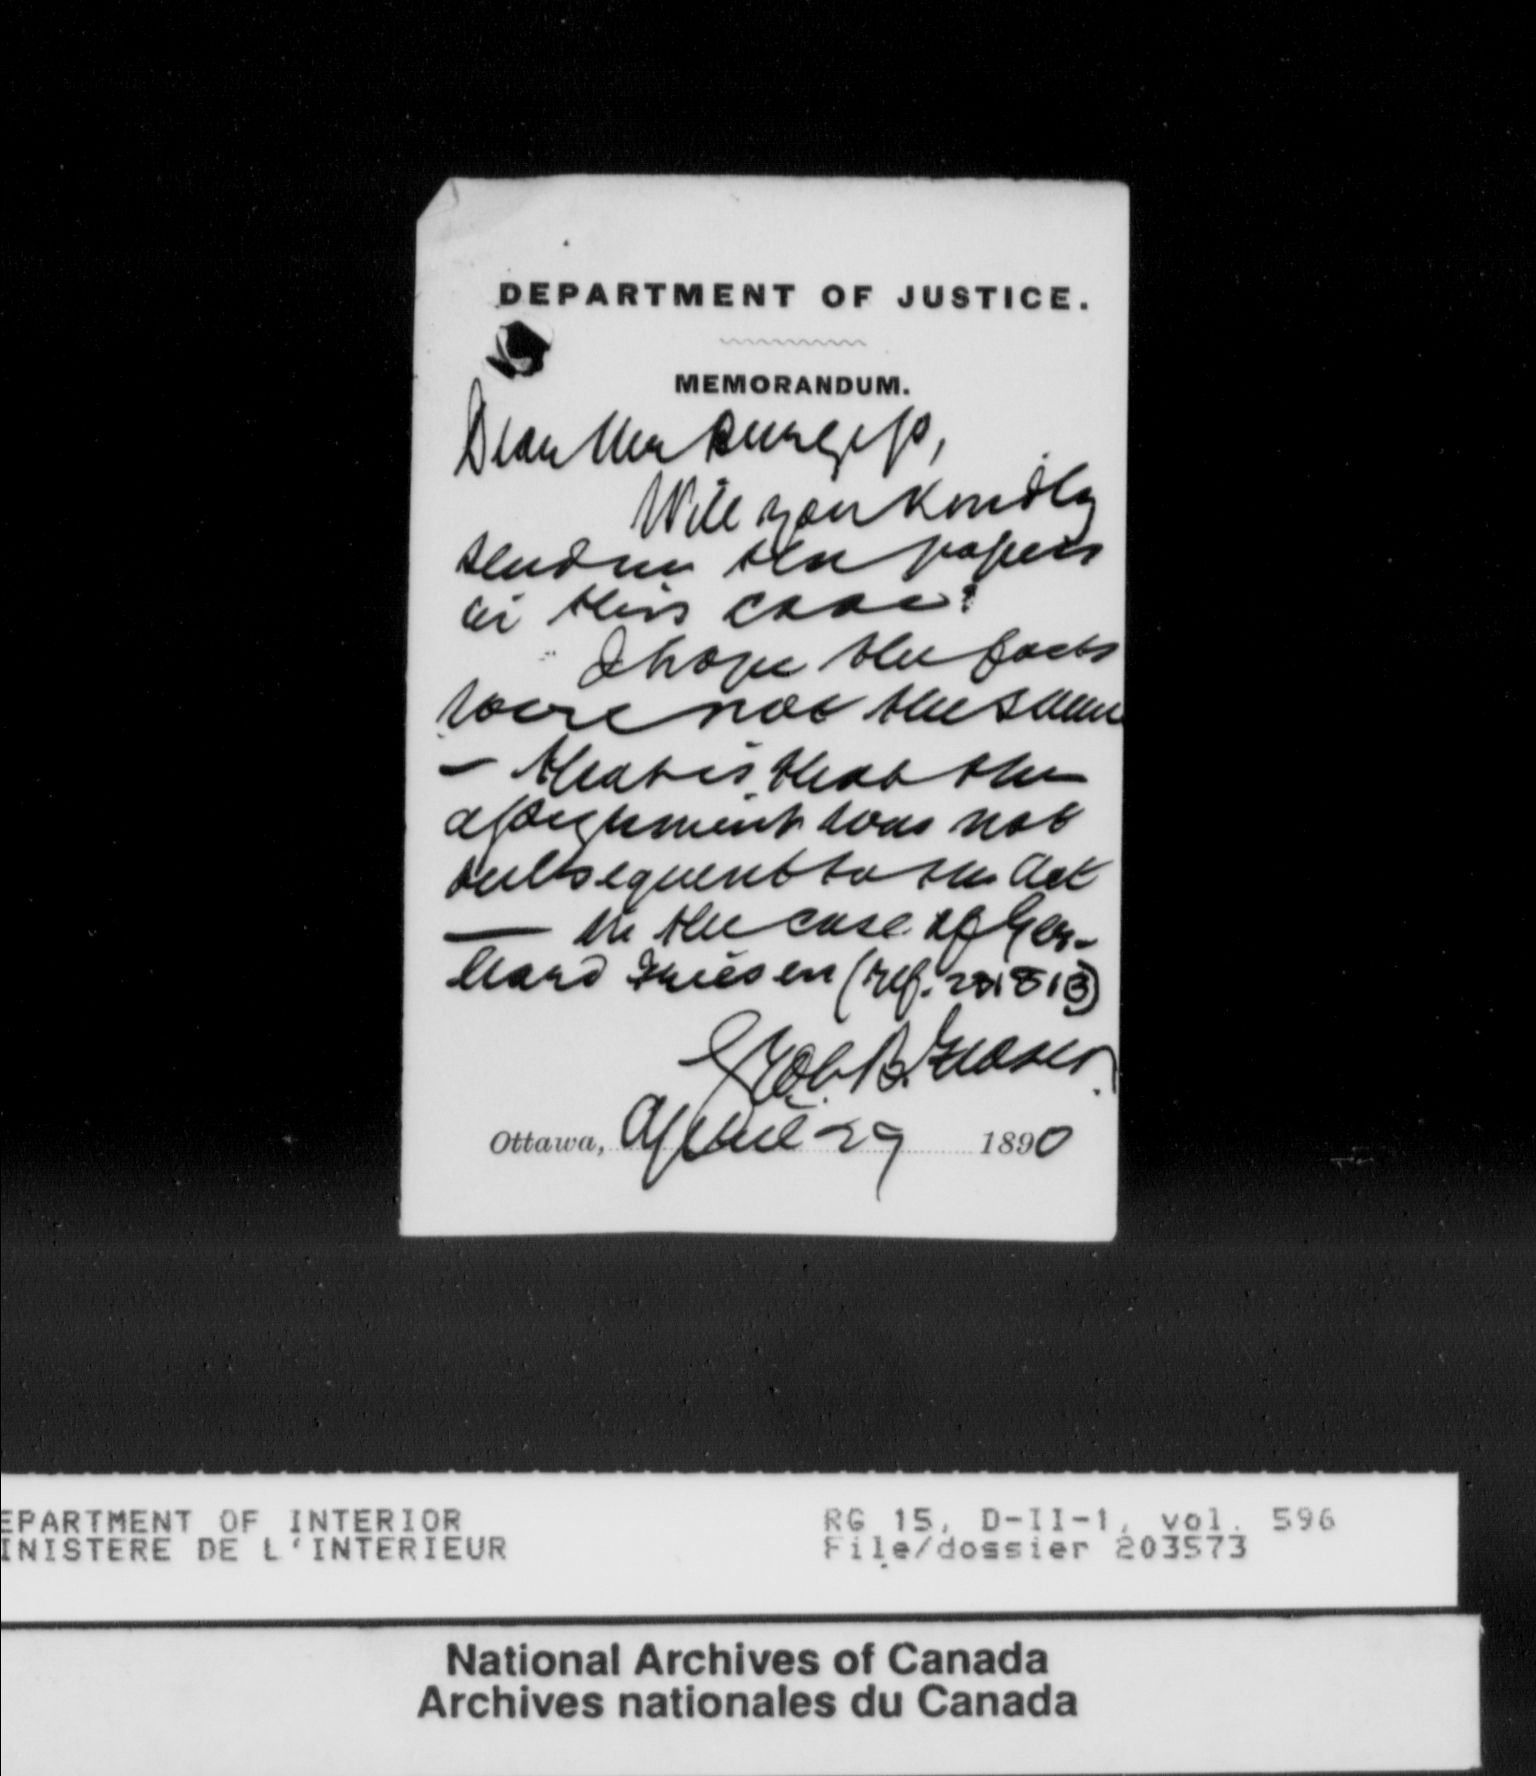 DEPARTMENT OF JUSTICE.
MEMORANDUM.
Dear Mr Burgess,
Will you kindly
send me the papers
in this case?
I hope the facts
were not the same
— that is that the
assignment was not
subsequent to the Act
— in the case of Ger-
hard Friesen (ref.
B. Fraser
Ottawa, April 29 1890
EPARTMENT OF INTERIOR
INISTERE DE L'INTERIEUR
RG 15, D-II-1, vol. 596
File/dossier 203573
National Archives of Canada
Archives nationales du Canada